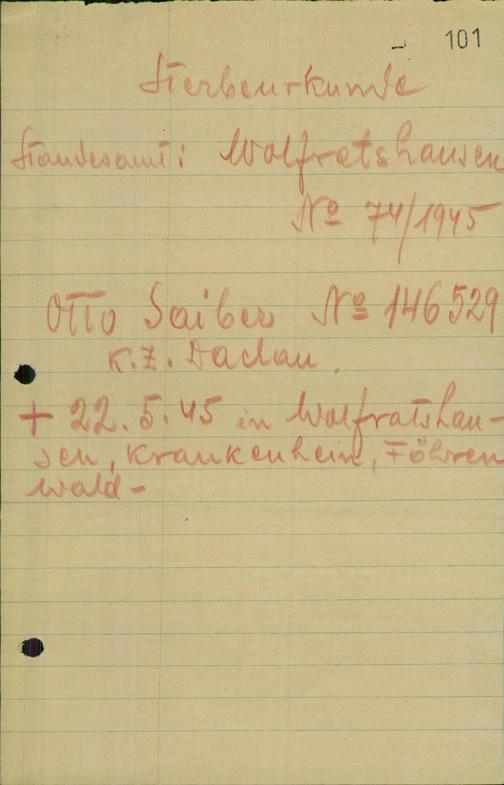 101
Sterbeurkunde
Standesamt: Wolfratshausen
No 74/1945
Otto Saiber No 146529
K.Z. Dachau.
+ 22.5.45 in Wolfratshau-
sen, Krankenheim, Föhren
wald-